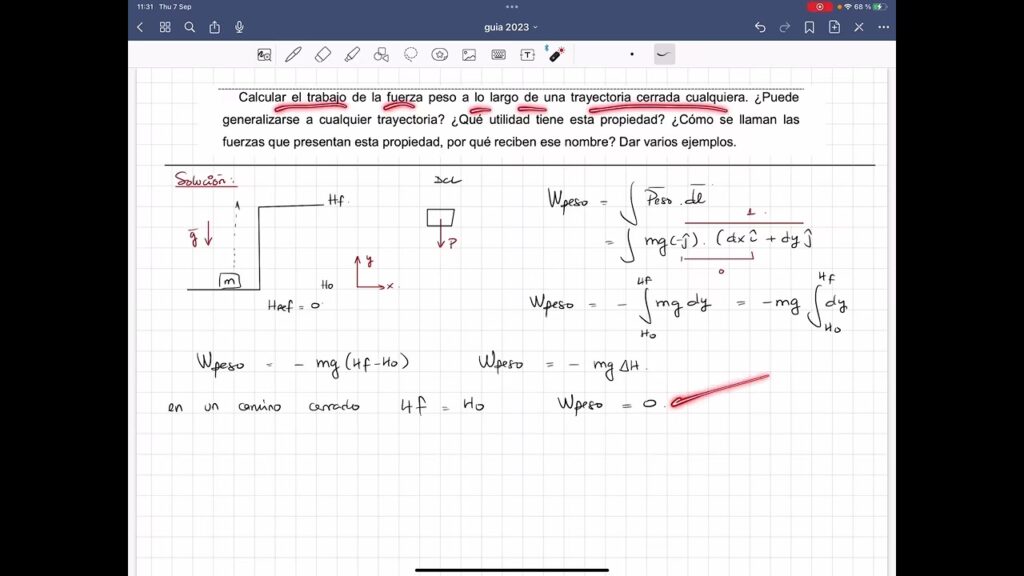 11:31 Thu 7 Sep
68 %
guia 2023
Calcular el trabajo de la fuerza peso a lo largo de una trayectoria cerrada cualquiera. ¿Puede
generalizarse a cualquier trayectoria? ¿Qué utilidad tiene esta propiedad? ¿Cómo se llaman las
fuerzas que presentan esta propiedad, por qué reciben ese nombre? Dar varios ejemplos.
Solución:
DCL
Hf
g
m
Ho
HRef = 0
P
y
x
Wpeso = ∫ Peso . dl
= ∫ mg(-ĵ) . (dx î + dy ĵ
1
0
Wpeso = - ∫ Ho Hf mg dy = - mg ∫ Ho Hf dy
Wpeso = - mg (Hf - Ho) Wpeso = - mg ΔH.
en un camino cerrado Hf = Ho Wpeso = 0.